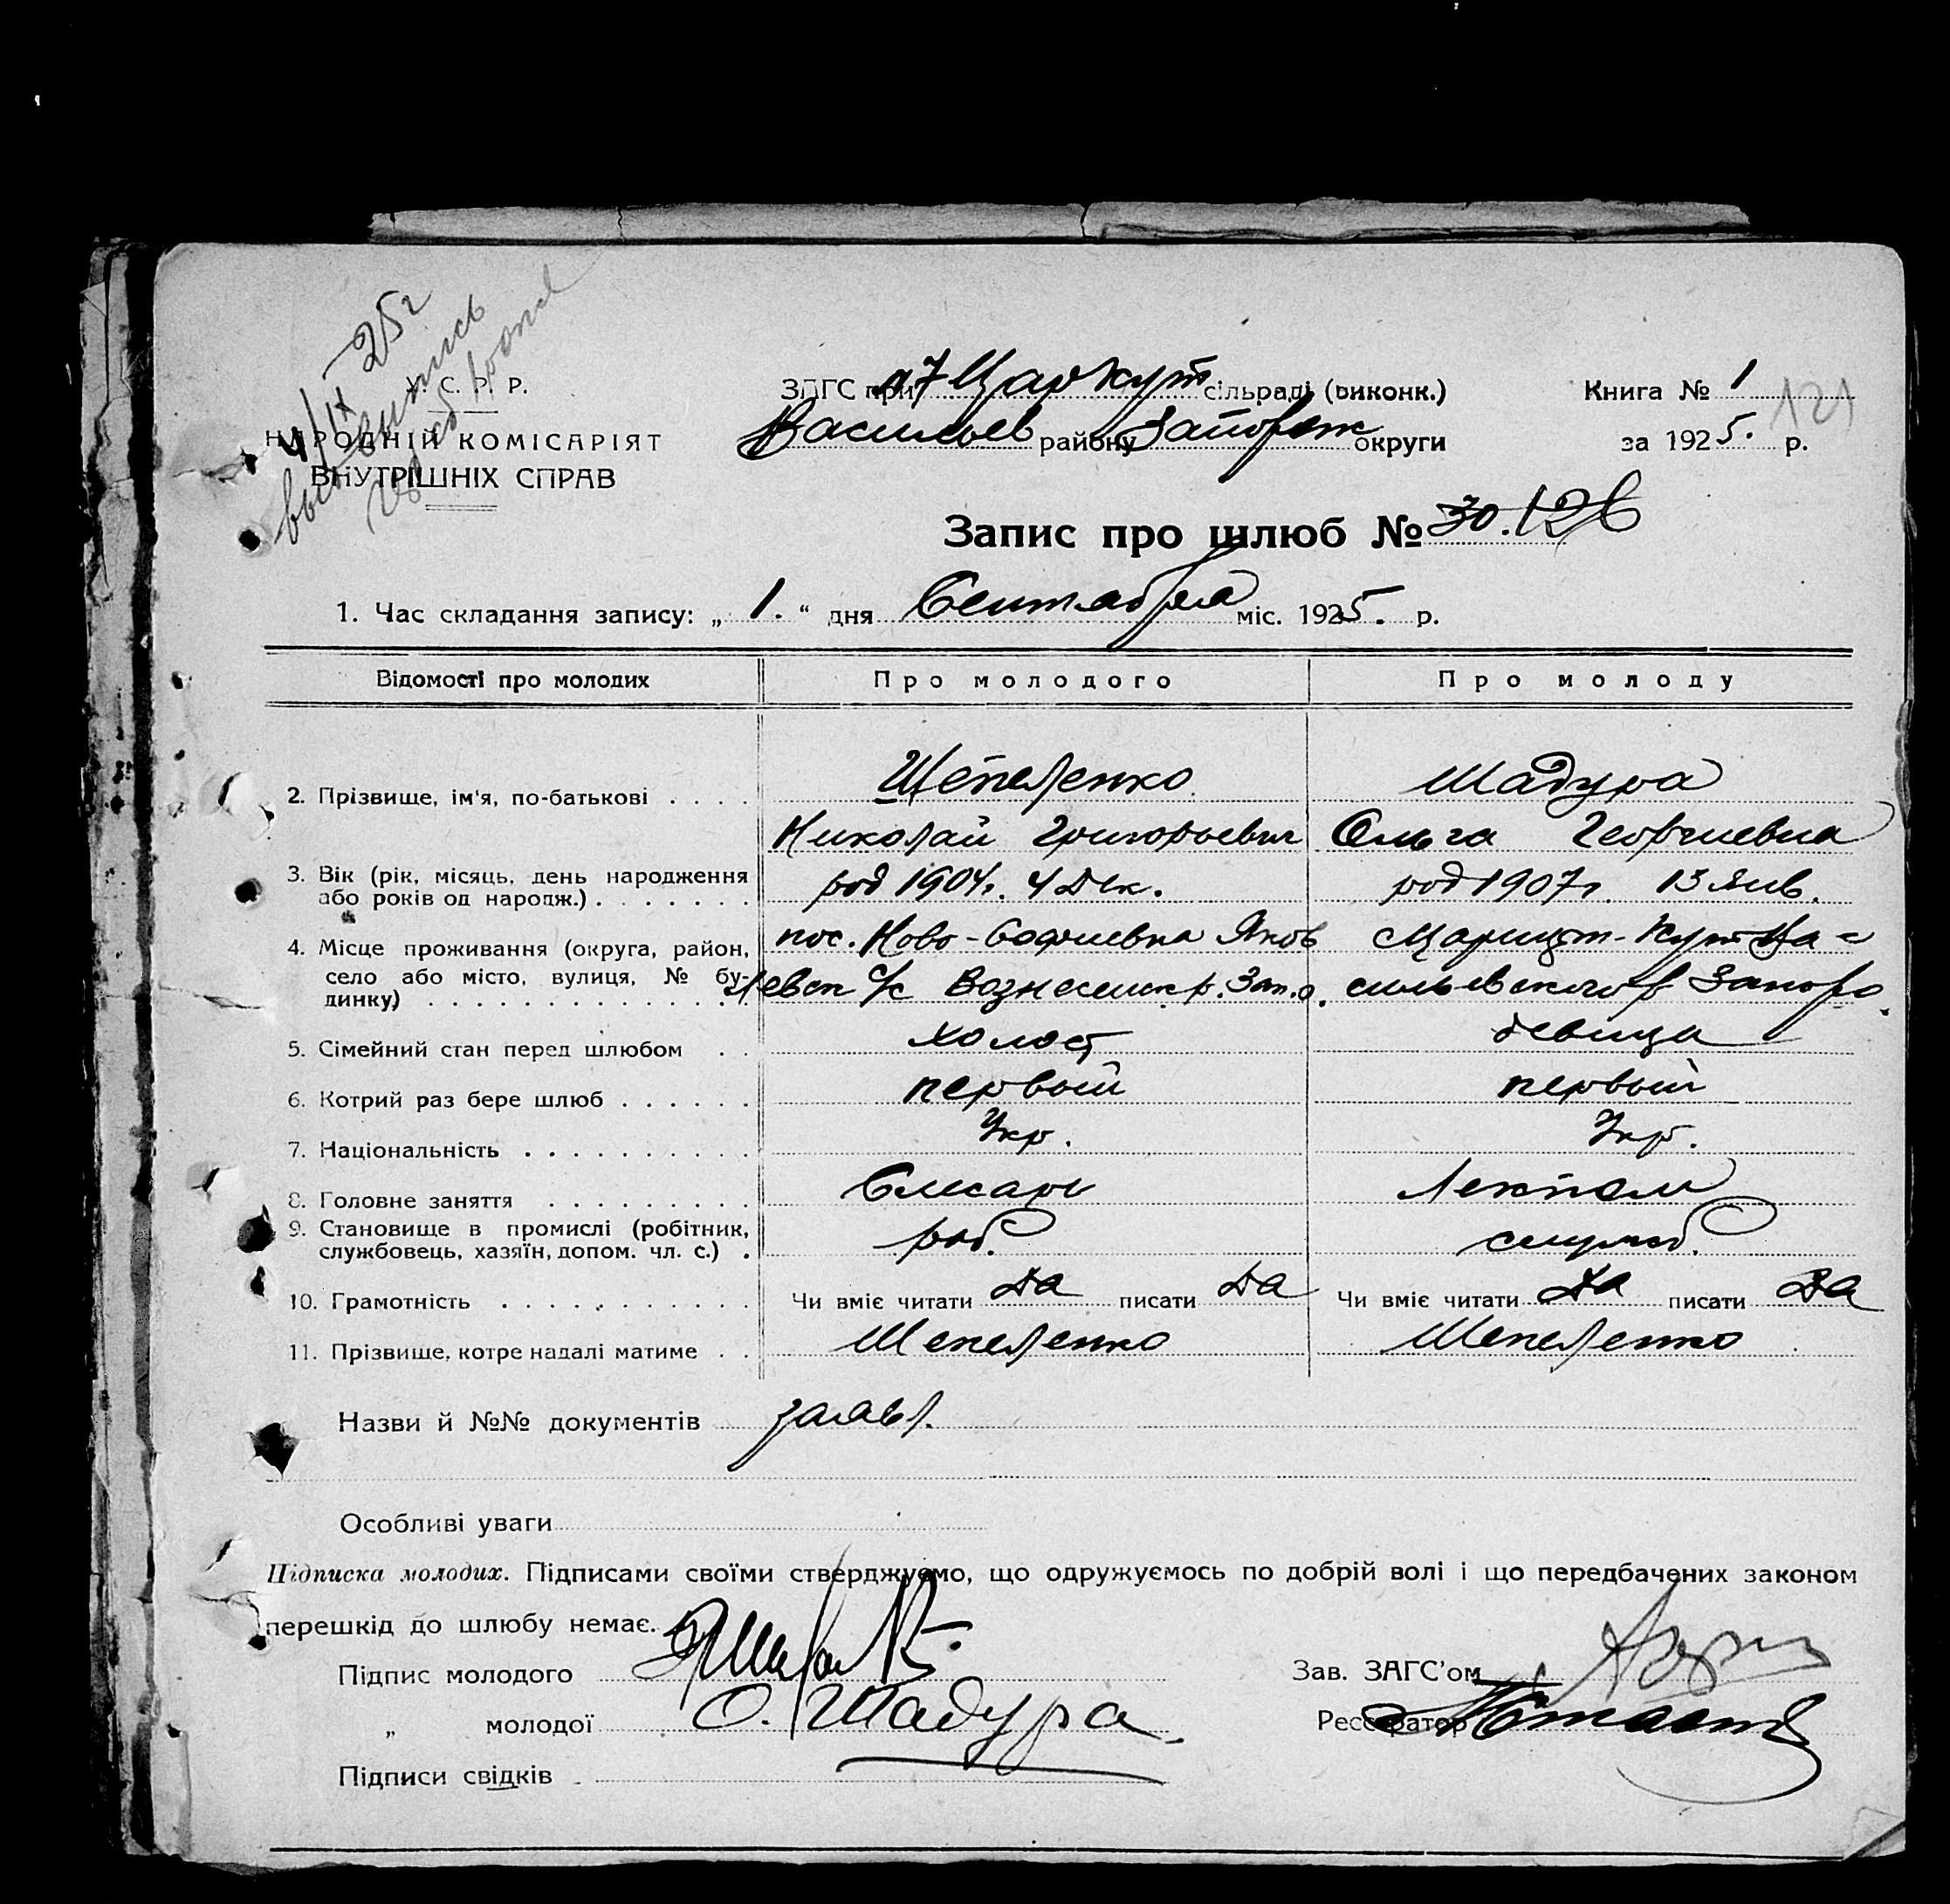 4/IX 25г
выпись
У. С. Р. Р.
НАРОДНІЙ КОМІСАРІЯТ
ВНУТРІШНІХ СПРАВ
ЗАГС при Царкут сільраді (виконк.)
Васильев району Запорож округи
Книга № 1
121
за 1925. р.
Запис про шлюб № 30. 126
1. Час складання запису: „ 1. “ дня Сентября міс. 1925. р.
Відомості про молодих Про молодого Про молоду
2. Прізвище, ім'я, по-батькові . . . . Щепеленко Шадура
Николай Григорьевич Ольга Георгиевна
3. Вік (рік, місяць, день народження род 1904г. 4 Дек. род 1907г. 13 Янв.
або років од народж.) . . . . . . .
4. Місце проживання (округа, район, пос. Ново-Софиевка Яков Царицын-Кут Ва=
село або місто, вулиця, № бу- левск с/с Вознесенск р. Зап.о. сильевского р Запор о.
динку) . . . . . . . . . . . . .
5. Сімейний стан перед шлюбом . . холост девица
6. Котрий раз бере шлюб . . . . . . первый первый
7. Національність . . . . . . . . . . Укр. Укр.
8. Головне заняття . . . . . . . . . Слесарь Лекпом
9. Становище в промислі (робітник, раб. служ.
службовець, хазяїн, допом. чл. с.) .
10. Грамотність . . . . . . . . . . . Чи вміє читати Да писати Да Чи вміє читати Да писати Да
11. Прізвище, котре надалі матиме . . Шепеленко Шепеленко
Назви й №№ документів заявл.
Особливі уваги
Підписка молодих. Підписами своїми стверджуємо, що одружуємось по добрій волі і що передбачених законом
перешкід до шлюбу немає.
Підпис молодого
Зав. ЗАГС'ом
„ молодої О. Шадура
Реєстратор
Підписи свідків